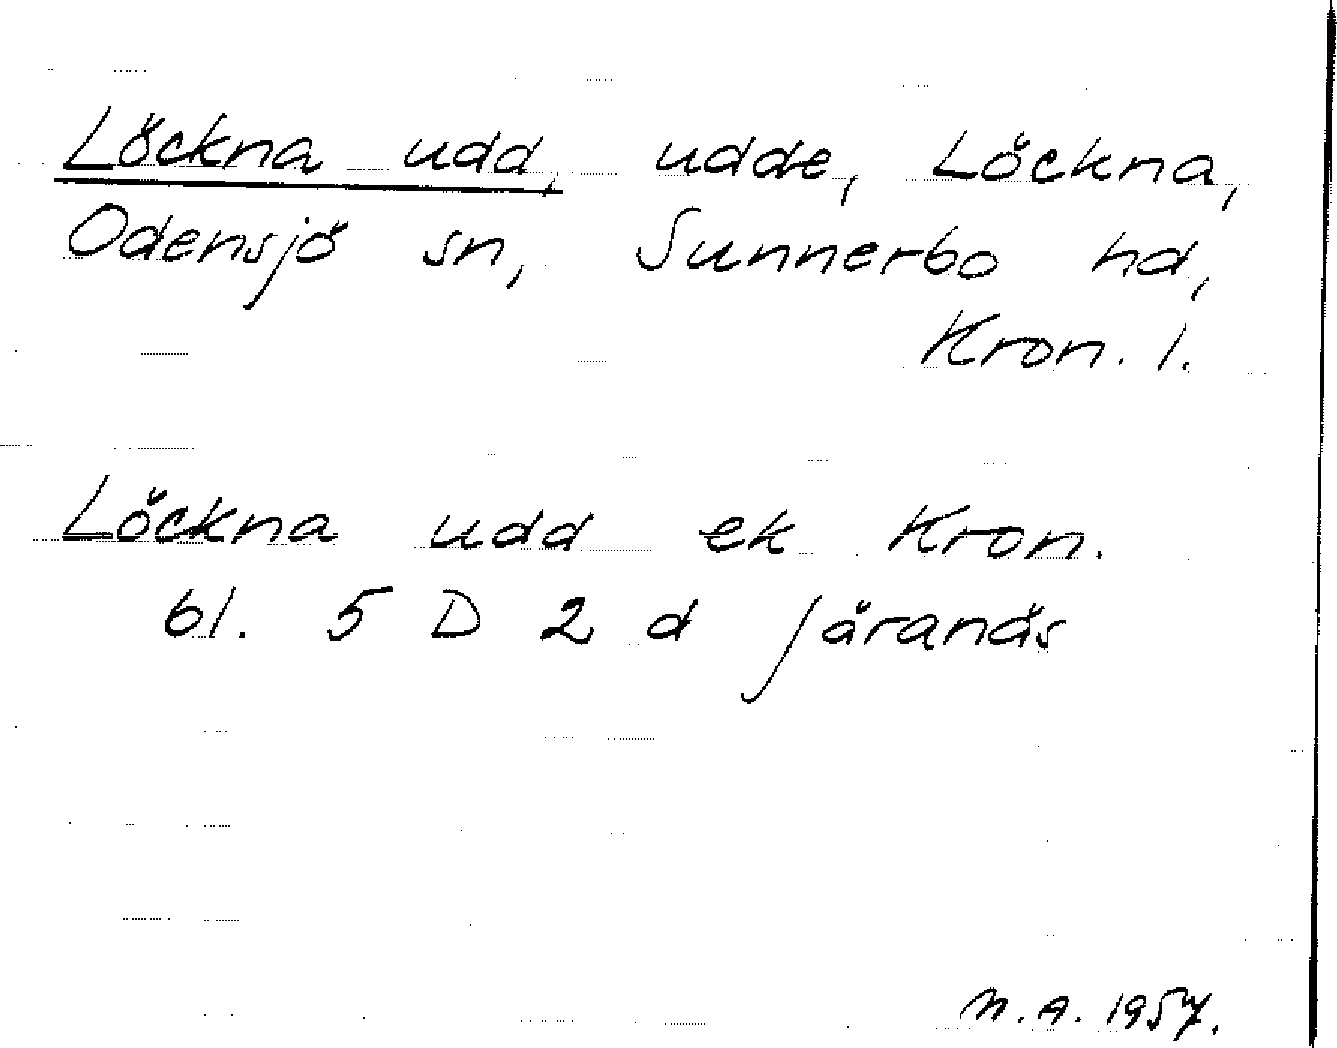 Löckna udd, udde, Löckna,
Odensjö sn, Sunnerbo hd,
Kron. l.
Löckna udd ek Kron.
bl. 5 D 2 d Järanäs
N.A. 1957.